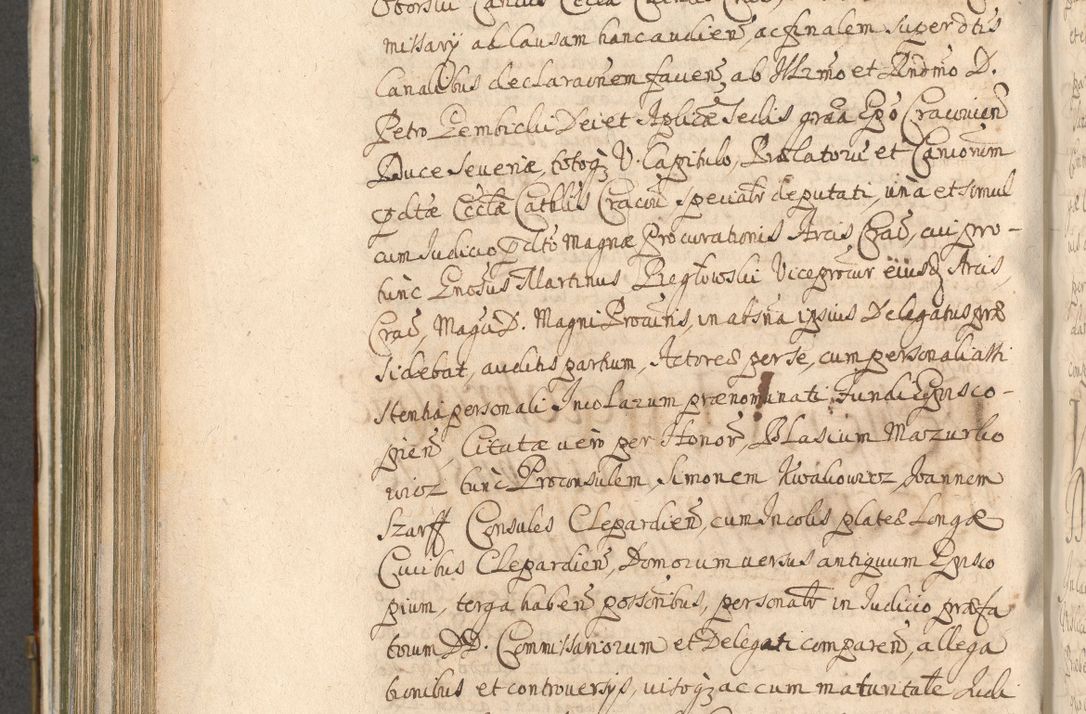 missarÿ ad causam hanc audien, ac finalem super dtis
Canalibus declaraōnem faven, ab Illrmo et Rndmo D.
Petro Gembicki Dei et Aplicæ Sedis graā Epo Cracovien
Duce Severiæ, totoqz V. Capitulo, Prælatorū et Canonorum
pdtæ Eccłæ Cathlis Cracou specialr deputati, unā et simul
cum Iudicio pdto Magnæ Procurationis Arcis Crac, cui pro-
tunc Gnosus Martinus Vicegrocur eiusd Arcis
Crac, Magci D. Magni Procuris, in absna ipsius Delegatus præ
sidebat, auditis partium, Actores per se, cum personali assi
stentia personali Incolarum prænominati Fundi Episco-
pien Citatæ vero per Honor, Blasium Mazurko
wicz tunc Proconsulem, Simonem Kwaliowicz, Joannem
Szarff Consules Clepardien, cum Incolis plateæ Longæ
Civibus Clepardien, Domorum versus antiquum Episco
pium, terga haben possoribus, personalr in Iudicio præfa
torum DD. Commissariorum et Delegati comparen, allega
tionibus et controversÿs, visisqz ac cum maturitate Iudi